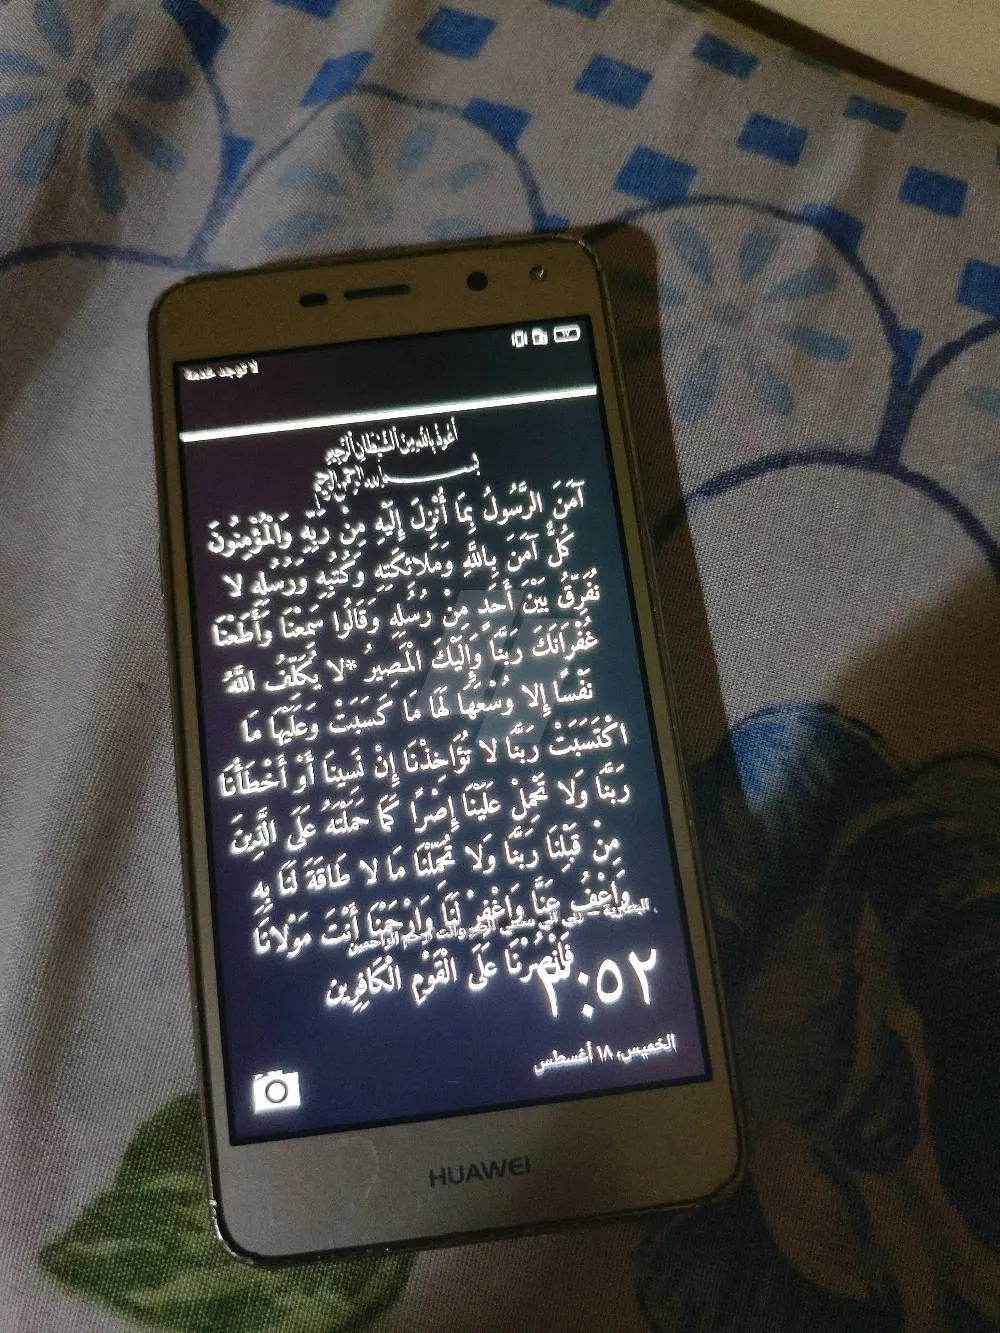 لا توجد خدمة
أعوذ بالله من الشيطان الرجيم
بسم الله الرحمن الرحيم
آمَنَ الرَّسُولُ بِمَا أُنْزِلَ إِلَيْهِ مِنْ رَبِّهِ وَالْمُؤْمِنُونَ
كُلٌّ آمَنَ بِاللَّهِ وَمَلَائِكَتِهِ وَكُتُبِهِ وَرُسُلِهِ لا
نُفَرِّقُ بَيْنَ أَحَدٍ مِنْ رُسُلِهِ وَقَالُوا سَمِعْنَا وَأَطَعْنَا
غُفْرَانَكَ رَبَّنَا وَإِلَيْكَ الْمَصِيرُ *لا يُكَلِّفُ اللَّهُ
نَفْسًا إِلا وُسْعَهَا لَهَا مَا كَسَبَتْ وَعَلَيْهَا مَا
اكْتَسَبَتْ رَبَّنَا لا تُؤَاخِذْنَا إِنْ نَسِينَا أَوْ أَخْطَأْنَا
رَبَّنَا وَلا تَحْمِلْ عَلَيْنَا إِصْرًا كَمَا حَمَلْتَهُ عَلَى الَّذِينَ
مِنْ قَبْلِنَا رَبَّنَا وَلا تُحَمِّلْنَا مَا لا طَاقَةَ لَنَا بِهِ
وَاعْفُ عَنَّا وَاغْفِرْ لَنَا وَارْحَمْنَا أَنْتَ مَوْلَانَا
وأنت أرحم الراحمين
فَانْصُرْنَا عَلَى الْقَوْمِ الْكَافِرِين
٢:٥٢
الخميس، ١٨ أغسطس
HUAWEI